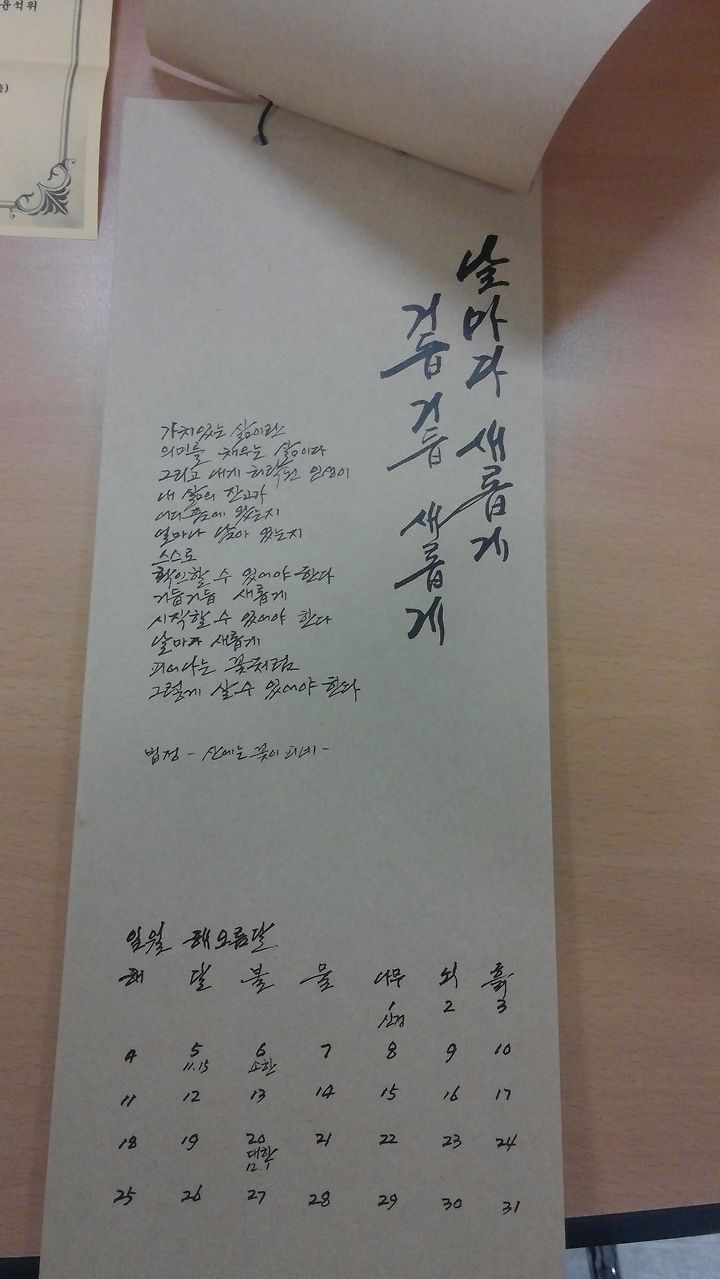 윤석위
날마다 새롭게
거듭 거듭 새롭게
가치있는 삶이란
의미를 채우는 삶이다
그리고 내게 허락된 인생이
내 삶의 잔고가
어디쯤에 있는지
얼마나 남아 있는지
스스로
확인할 수 있어야 한다
거듭거듭 새롭게
시작할 수 있어야 한다
날마다 새롭게
피어나는 꽃처럼
그렇게 살 수 있어야 한다
법정 - 산에는 꽃이 피네 -
일월 해오름달
해 달 불 물 나무 쇠 흙
1 2 3
신정
4 5 6 7 8 9 10
11.15 소한
11 12 13 14 15 16 17
18 19 20 21 22 23 24
대한
12.1
25 26 27 28 29 30 31